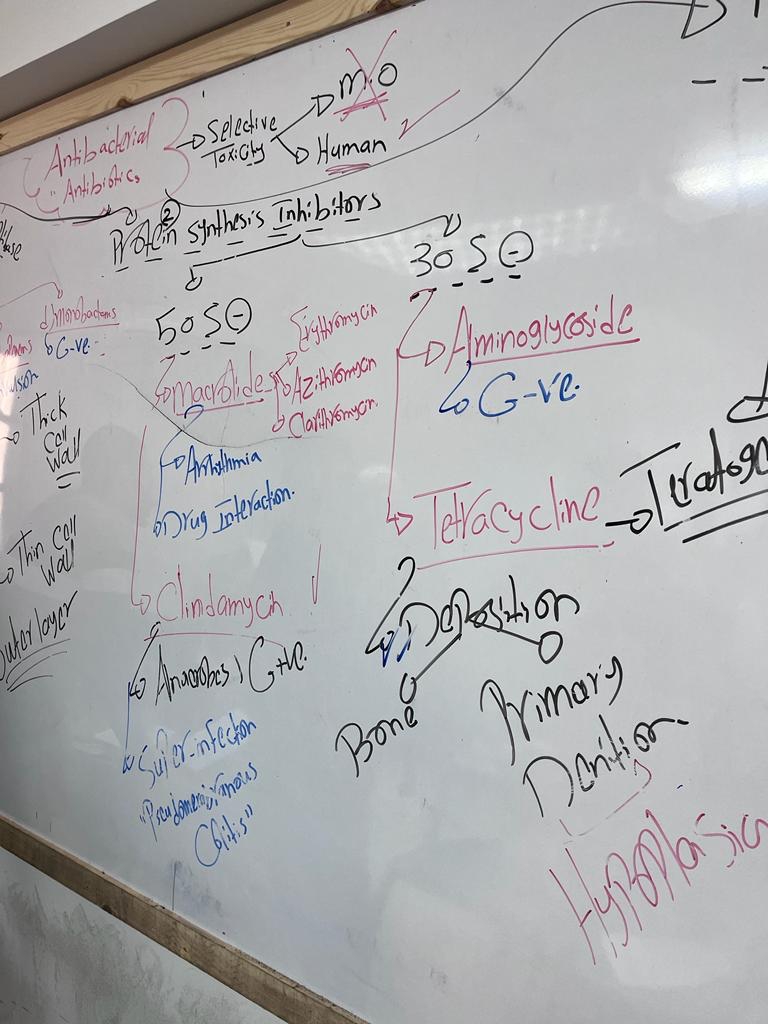 Antibacterial
"Antibiotics
Selective
Toxicity
M.O
Human
2
Protein synthesis Inhibitors
50 S -
30 S -
d) monobactams
G-ve.
Thick
Cell
Wall
Thin Cell
Wall
outerlayer
Macrolide
Erythromycin
Azithromycin
Clarithromycin.
Arrhythmia
Drug Interaction.
Clindamycin
Anaerobes, G+ve.
Super-infection
"Pseudomembranous
Colitis"
Aminoglycoside
G-ve.
Tetracycline
Teratoge
Deposition
Bone
Primary
Dentition.
Hypoplasia